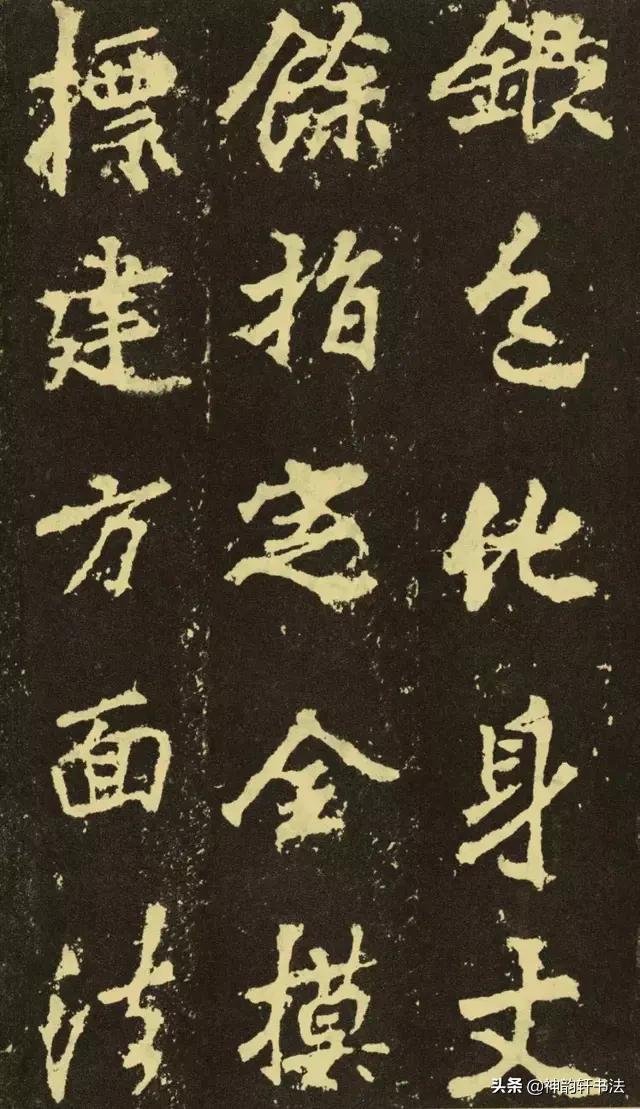 銀色化身丈
餘指定全摸
摽建方面法
头条 @神韵轩书法